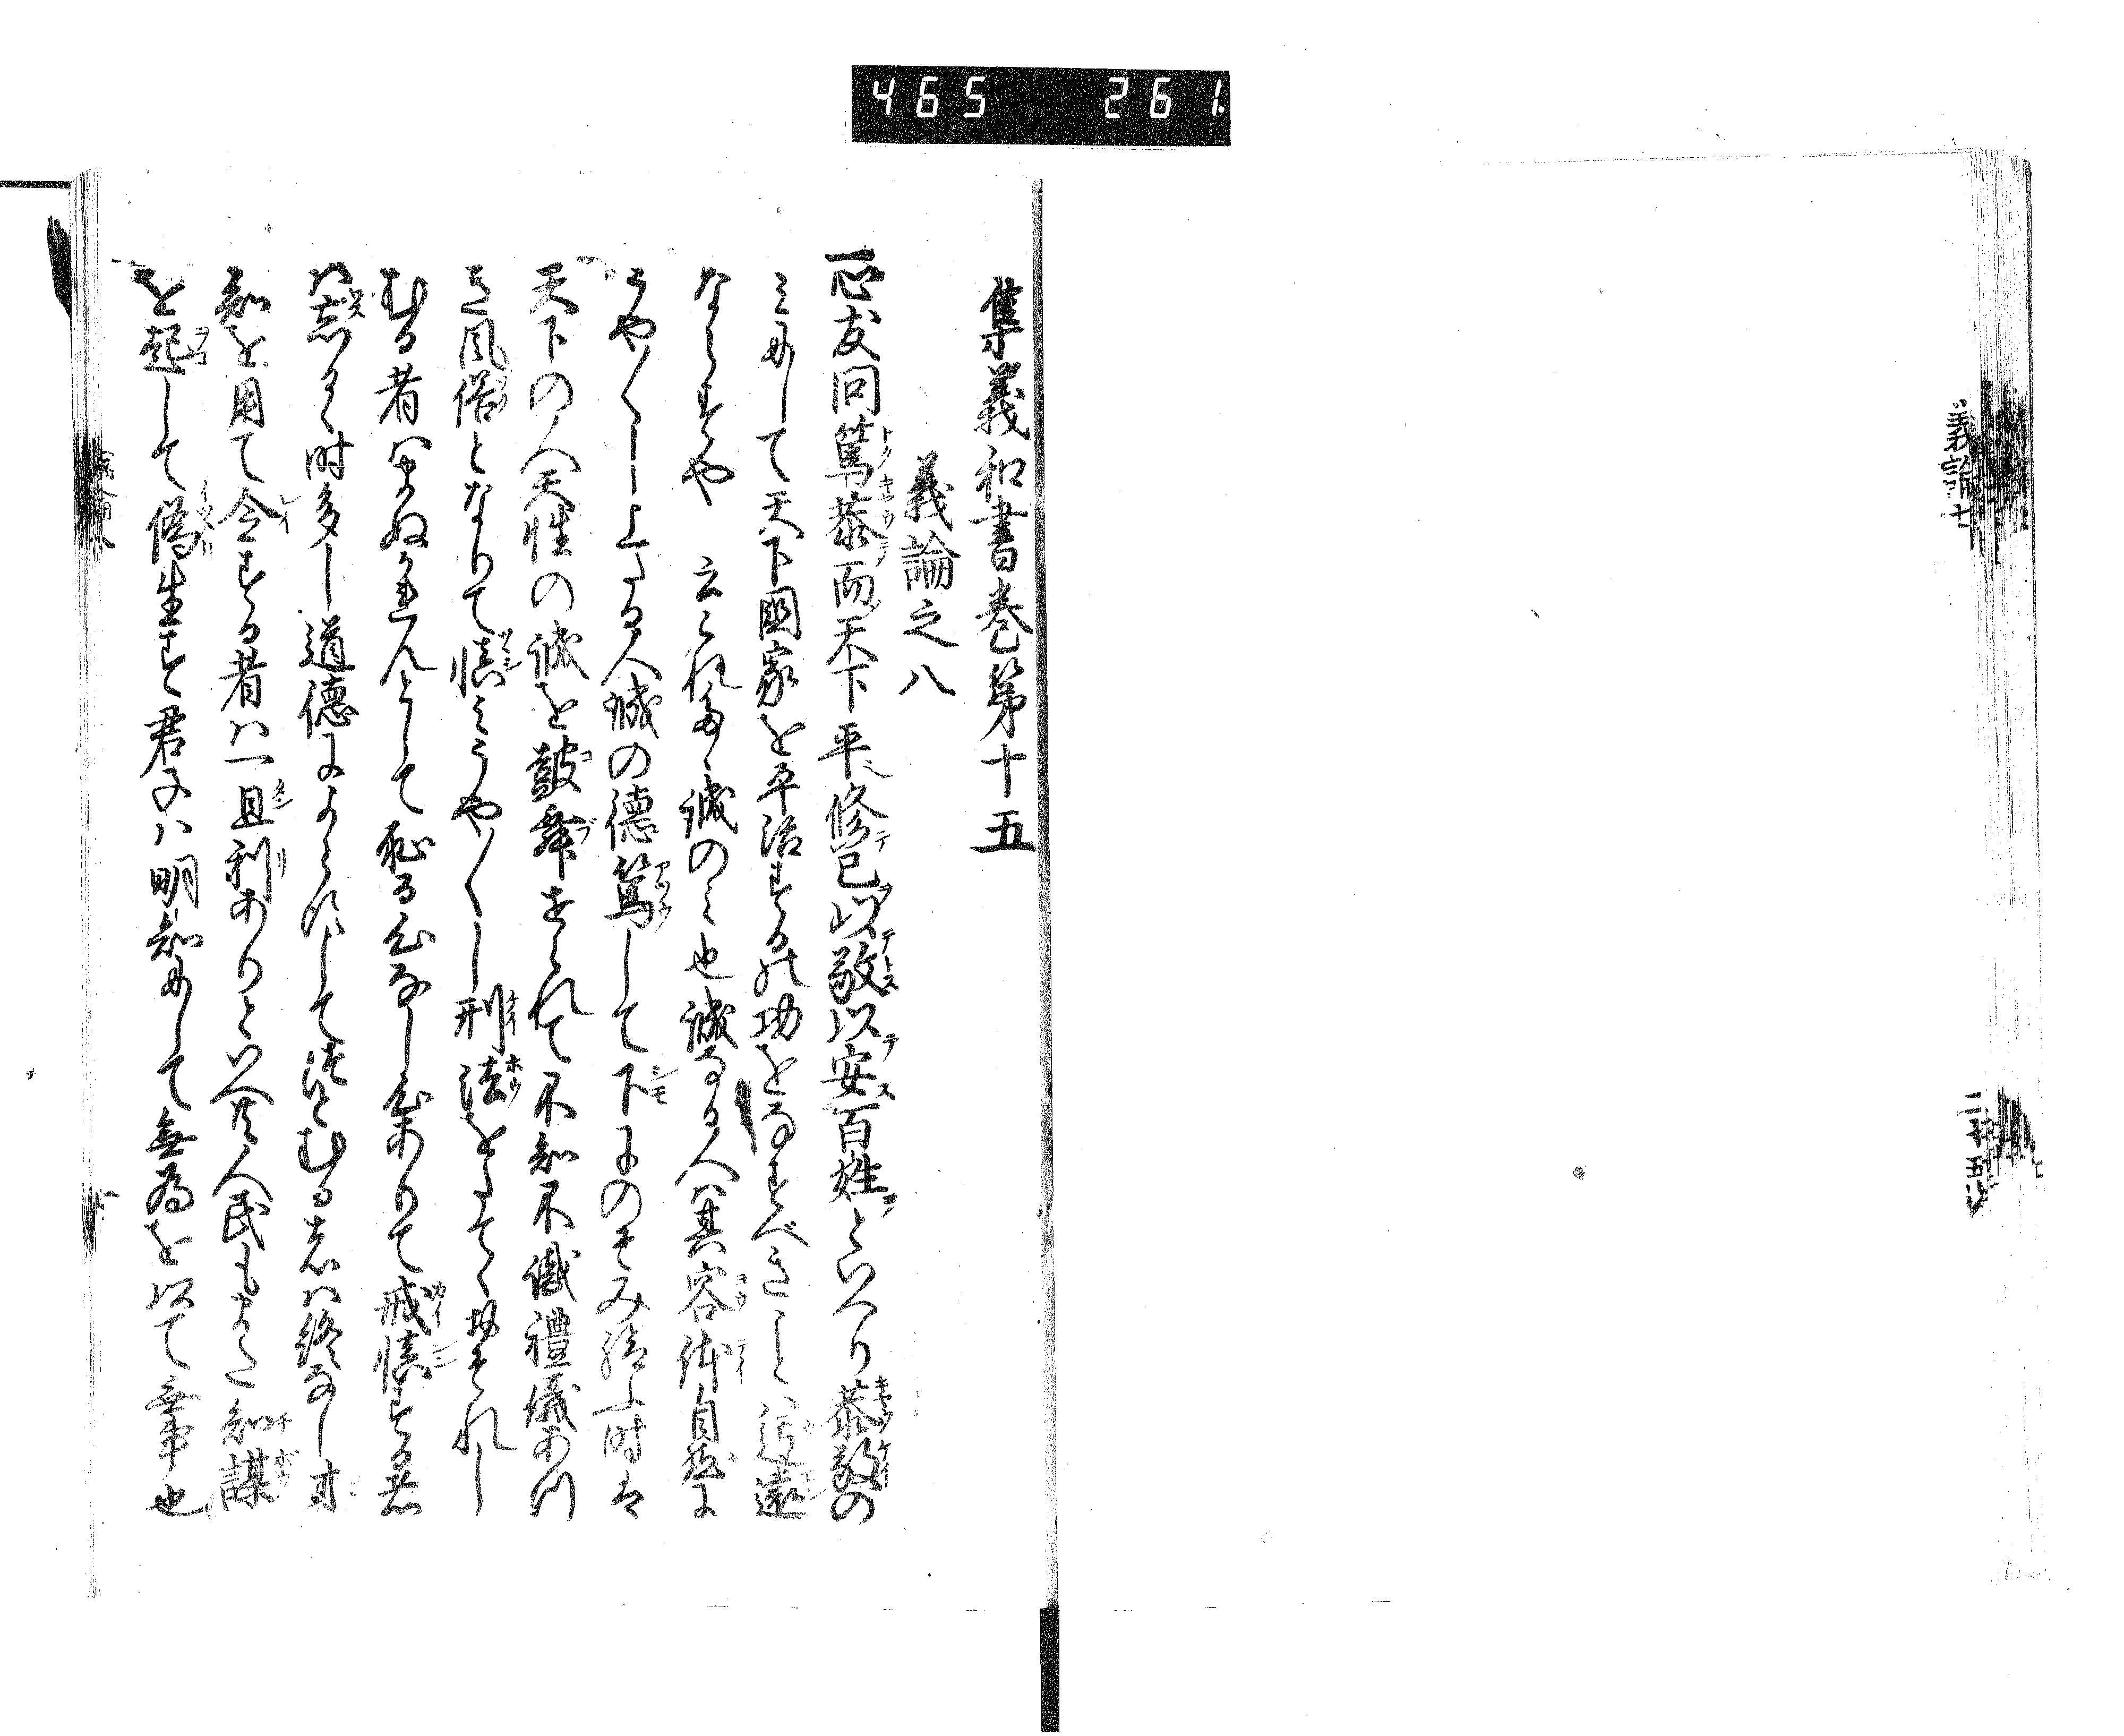 465 261
義論七
集義和書巻第十五
義論之八
一心友問篤恭而天下平修己以敬以安百姓といへり恭敬の
みにして天下國家を平治するの功を得すべきこと迂遠
ならすや 云これ多ゝ誠のみ也誠ある人ハ其容体自然に
うや〱し上たる人誠の徳篤して下にのそみ給ふ時は
天下の人天性の誠を鼓舞せられて不知不識禮儀あつ
き風俗となりて慎みうや〱し刑法をたてゝ
むる者ハまぬかれんとして恥る心なし心ありて戒慎する者
ハ怠りゆく時多し道徳によらすしてつとむる者ハ終なし才
知を用て令する者ハ一旦利ありといへ共人民もまた知謀
を起して偽生す君子ハ明知にして無為を以て無事也